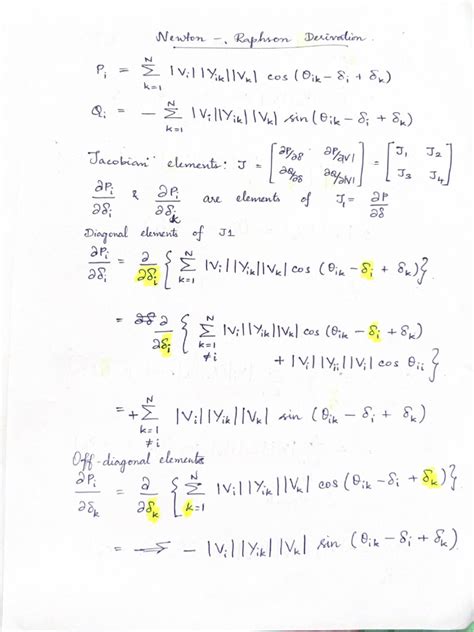 Newton - Raphson Derivation.
Pi = Σ_{k=1}^{N} |Vi||Yik||Vk| cos (θik - δi + δk)
Qi = - Σ_{k=1}^{N} |Vi||Yik||Vk| sin (θik - δi + δk)
Jacobian elements: J = [∂P/∂δ ∂P/∂|V| ; ∂Q/∂δ ∂Q/∂|V|] = [J1 J2 ; J3 J4]
∂Pi/∂δi & ∂Pi/∂δk are elements of J1 = ∂P/∂δ
Diagonal elements of J1
∂Pi/∂δi = ∂/∂δi { Σ_{k=1}^{N} |Vi||Yik||Vk| cos (θik - δi + δk)}
= ∂/∂δi { Σ_{k=1 ≠i}^{N} |Vi||Yik||Vk| cos (θik - δi + δk)
+ |Vi||Yii||Vi| cos θii }
= + Σ_{k=1 ≠i}^{N} |Vi||Yik||Vk| sin (θik - δi + δk)
Off-diagonal elements
∂Pi/∂δk = ∂/∂δk { Σ_{k=1}^{N} |Vi||Yik||Vk| cos (θik - δi + δk)}
= - |Vi||Yik||Vk| sin (θik - δi + δk)